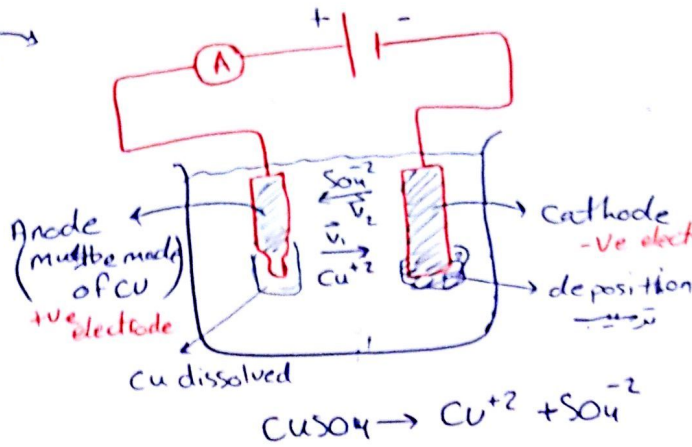 + -
A
So4⁻²
V̄₂
V̄₁
Cu⁺²
Anode
(must be made
of Cu)
+ve electrode
Cathode
-ve elect
deposition
ترسيب
Cu dissolved
CuSO4 → Cu⁺² + SO4⁻²